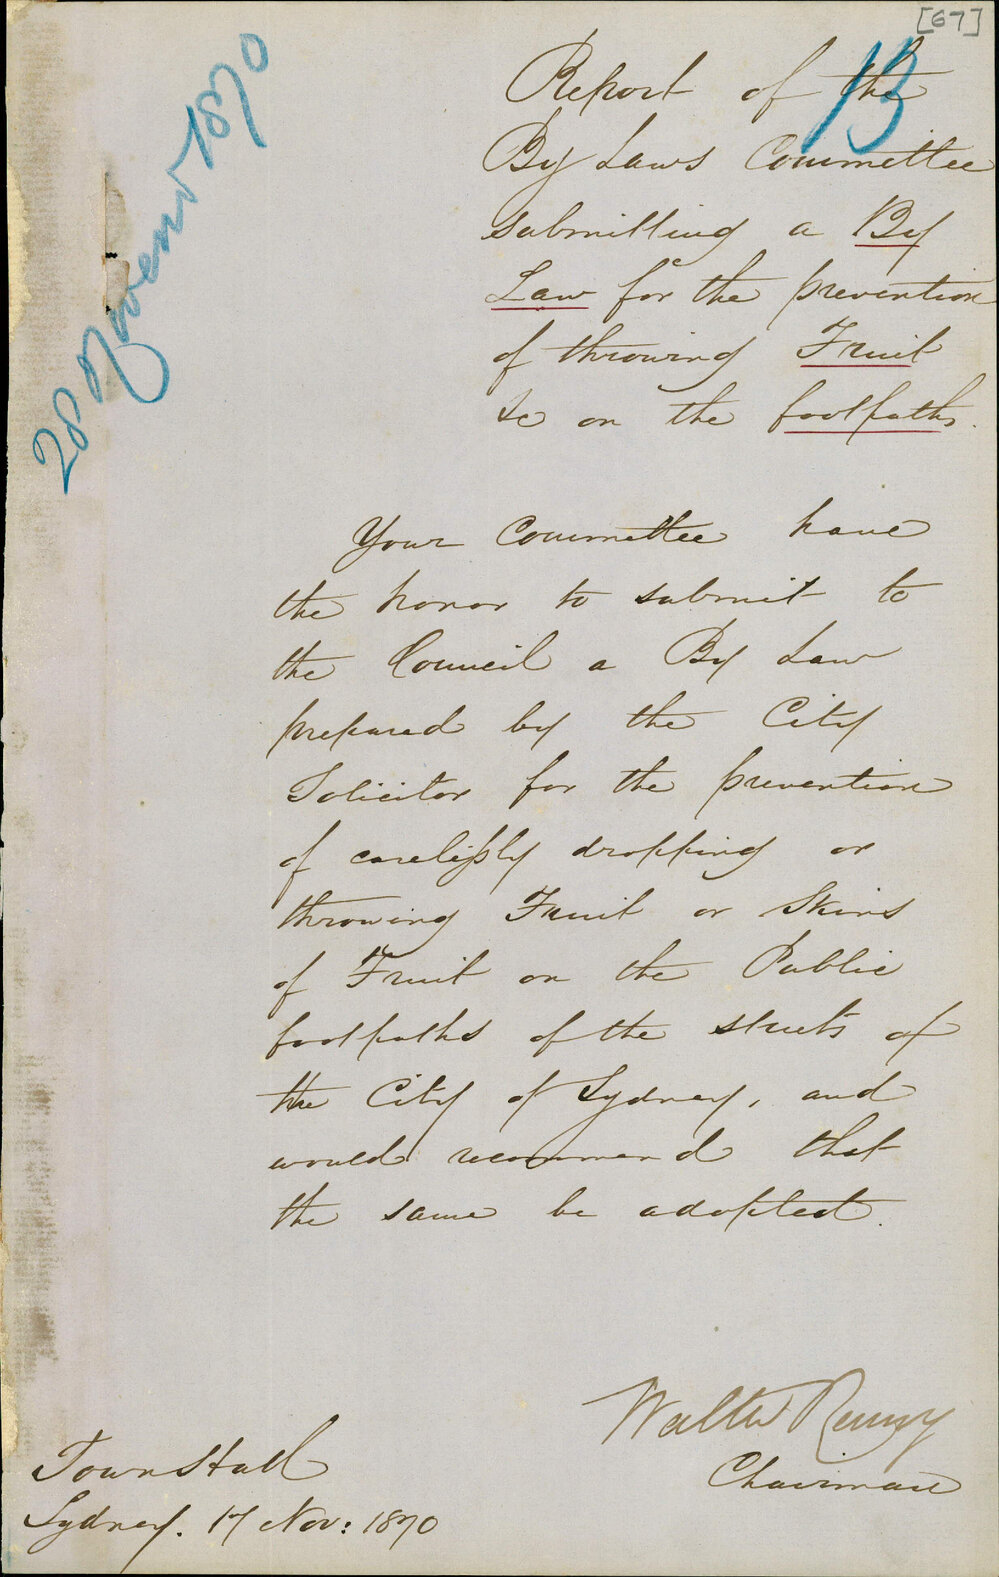 [67]
13
28 Novem 1870
Report of the
By Laws Committee
submitting a By
Law for the prevention
of throwing Fruit
&c on the footpaths.
Your Committee have
the honor to submit to
the Council a By Law
prepared by the City
Solicitor for the prevention
of carelessly dropping or
throwing Fruit or Skins
of Fruit on the Public
footpaths of the streets of
the City of Sydney, and
would recommend that
the same be adopted.
Walter Renny
Chairman
Town Hall
Sydney. 17 Nov: 1870